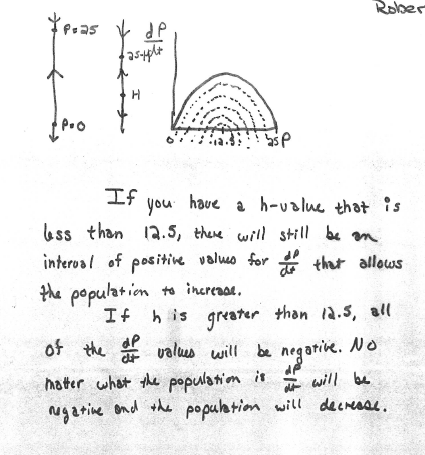 Rober
P=25
dP
dt
25-H
H
P=0
0 12.5 25 P
If you have a h-value that is
less than 12.5, there will still be an
interval of positive values for dP/dt that allows
the population to increase.
If h is greater than 12.5, all
of the dP/dt values will be negative. No
matter what the population is dP/dt will be
negative and the population will decrease.